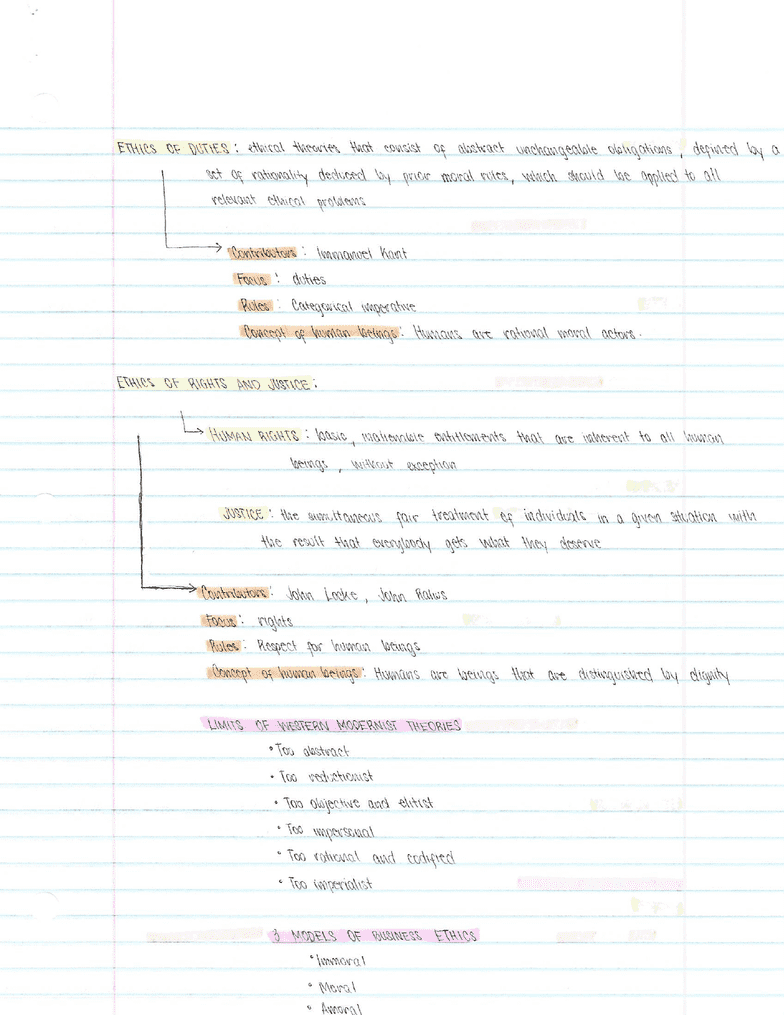 ETHICS OF DUTIES : ethical theories that consist of abstract unchangeable obligations, defined by a
set of rationality deduced by prior moral rules, which should be applied to all
relevant ethical problems
Contributors : Immanuel Kant
Focus : duties
Rules : Categorical imperative
Concept of human beings : Humans are rational moral actors.
ETHICS OF RIGHTS AND JUSTICE :
HUMAN RIGHTS : basic, inalienable entitlements that are inherent to all human
beings, without exception
JUSTICE : the simultaneous fair treatment of individuals in a given situation with
the result that everybody gets what they deserve
Contributors : John Locke, John Ralws
Focus : rights
Rules : Respect for human beings
Concept of human beings : Humans are beings that are distinguished by dignity
LIMITS OF WESTERN MODERNIST THEORIES
• Too abstract
• Too reductionist
• Too objective and elitist
• Too impersonal
• Too rational and codified
• Too imperialist
3 MODELS OF BUSINESS ETHICS
• Immoral
• Moral
• Amoral